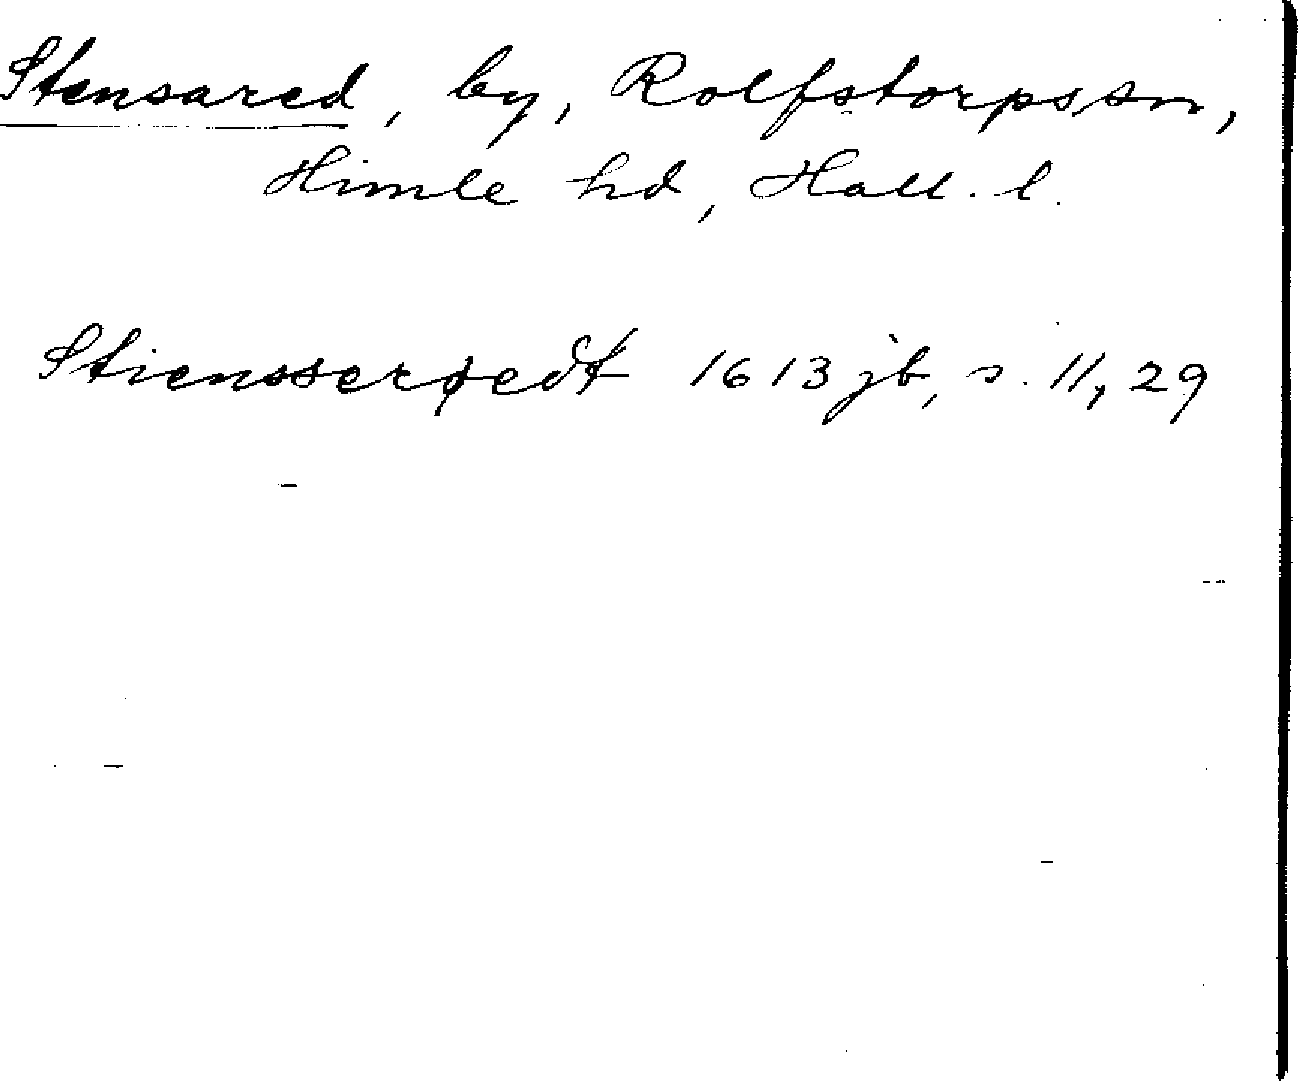 Stensared, by, Rolfstorps sn,
Himle hd, Hall. l.
Stiensserødt 1613 jb, s. 11, 29